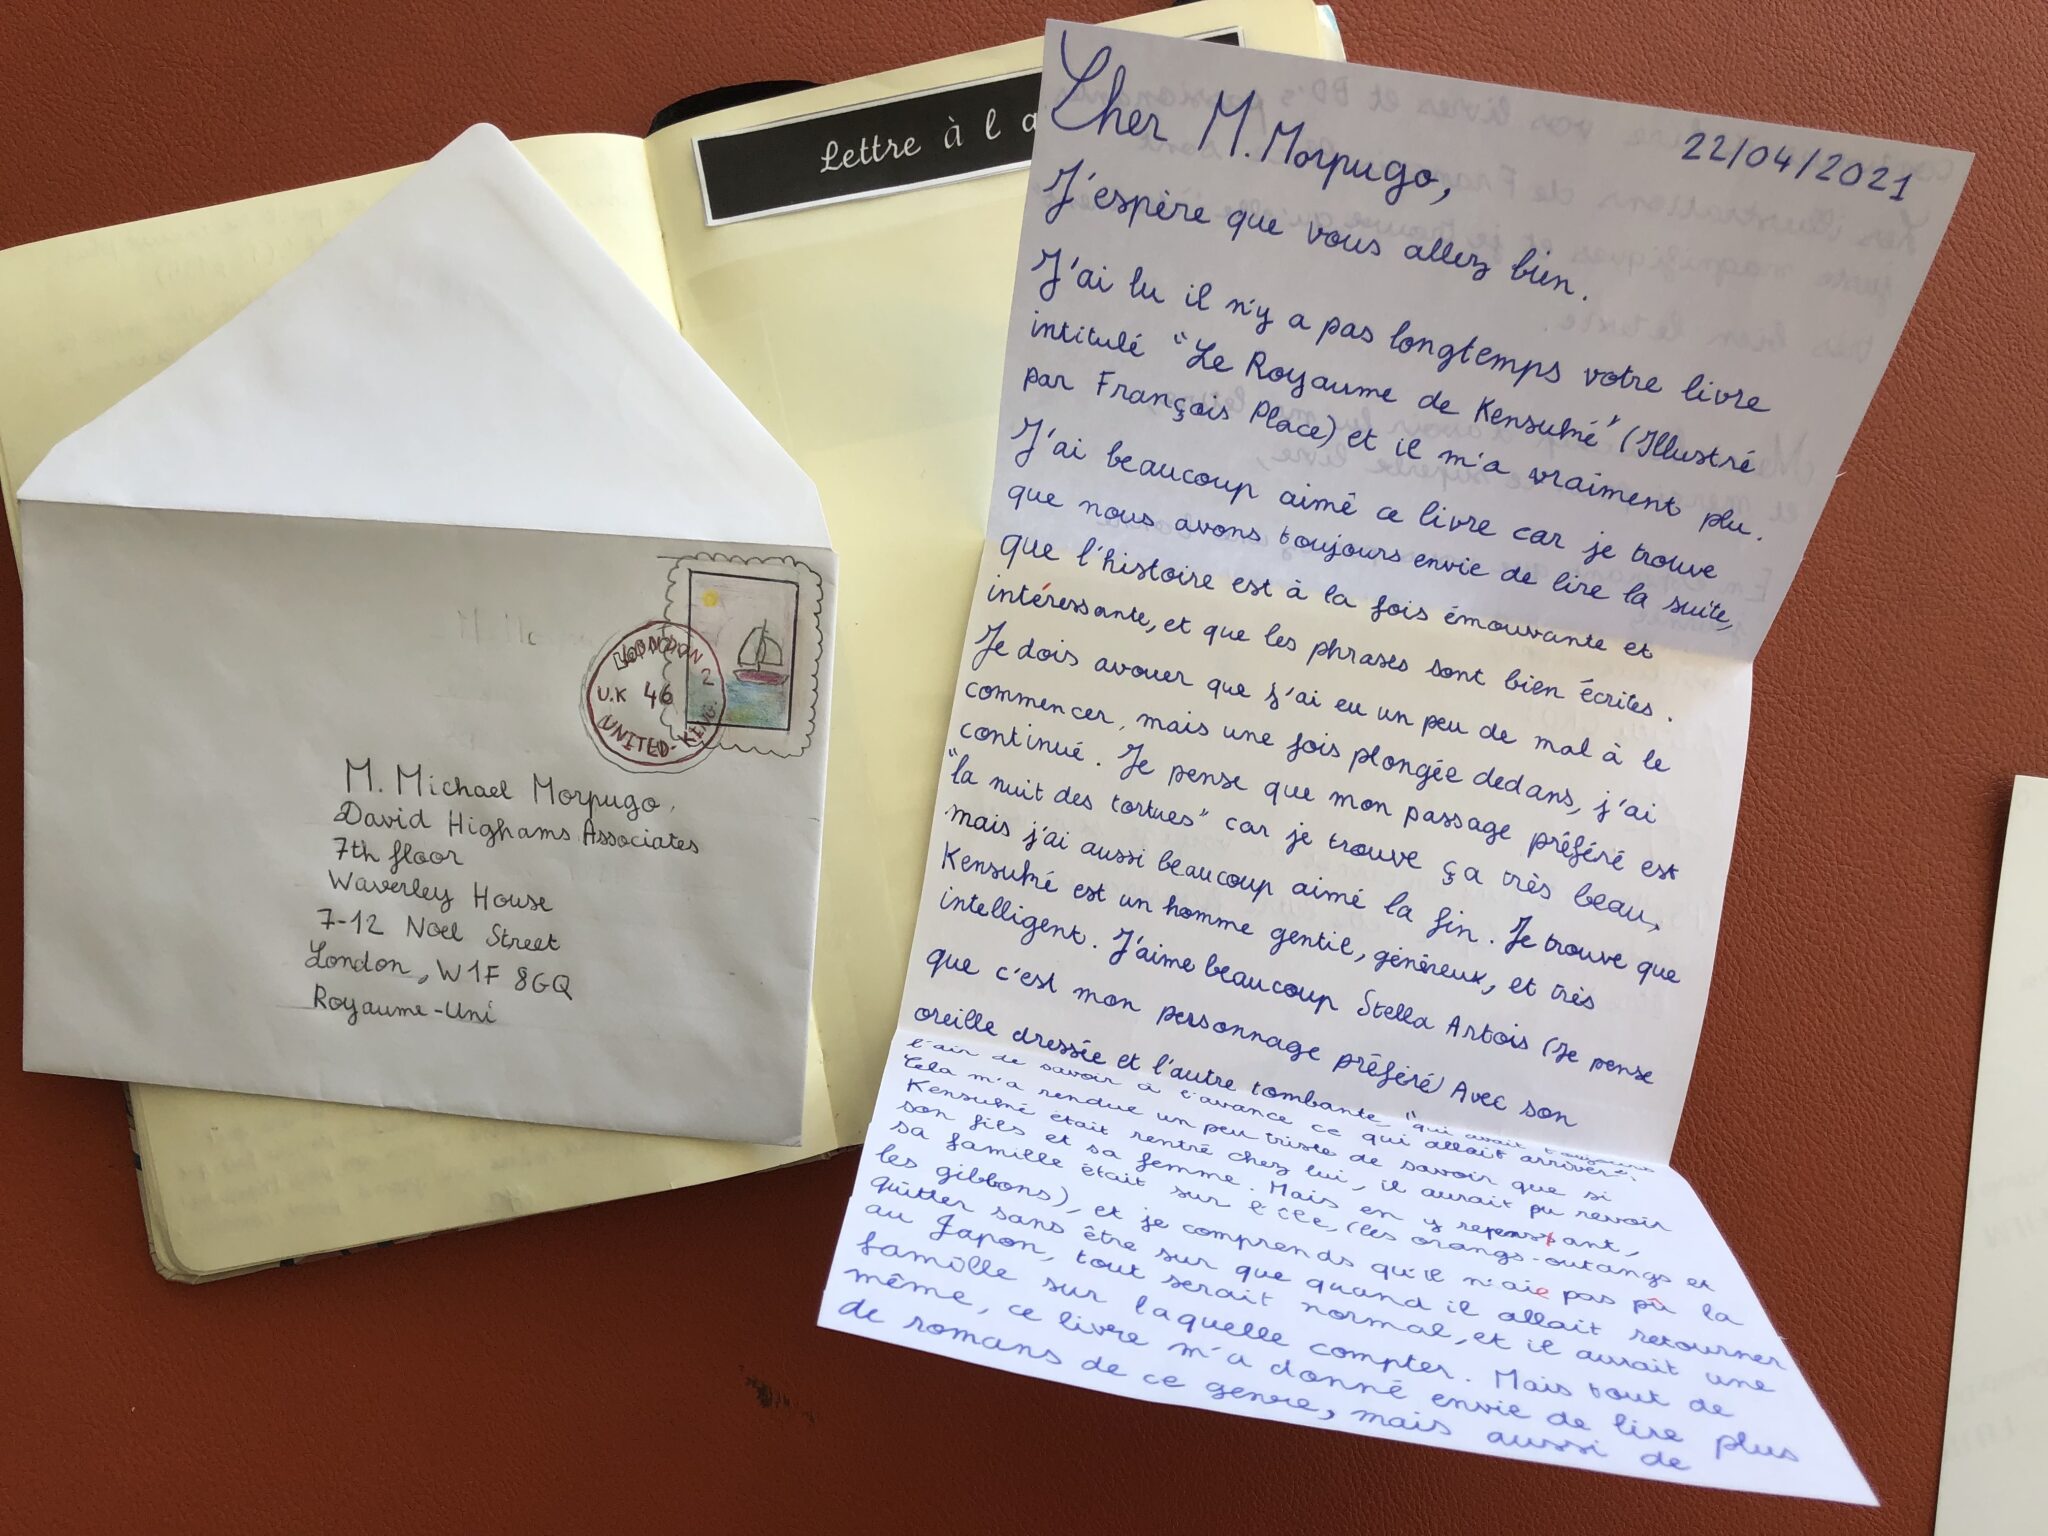 Lettre à l a
22/04/2021
Cher M. Morpugo,
J'espère que vous allez bien.
J'ai lu il n'y a pas longtemps votre livre
intitulé "Le Royaume de Kensuké" (Illustré
par François Place) et il m'a vraiment plu.
J'ai beaucoup aimé ce livre car je trouve
que nous avons toujours envie de lire la suite,
que l'histoire est à la fois émouvante et
intéressante, et que les phrases sont bien écrites.
Je dois avouer que j'ai eu un peu de mal à le
commencer, mais une fois plongée dedans, j'ai
continué. Je pense que mon passage préféré est
"la nuit des tortues" car je trouve ça très beau,
mais j'ai aussi beaucoup aimé la fin. Je trouve que
Kensuké est un homme gentil, généreux, et très
intelligent. J'aime beaucoup Stella Artois (je pense
que c'est mon personnage préféré) Avec son
oreille dressée et l'autre tombante, "qui avait toujours
l'air de savoir à l'avance ce qui allait arriver".
Cela m'a rendue un peu triste de savoir que si
Kensuké était rentré chez lui, il aurait pu revoir
son fils et sa femme. Mais en y repensant,
sa famille était sur l'île, (les orangs-outangs et
les gibbons), et je comprends qu'il n'aie pas pû la
quitter sans être sur que quand il allait retourner
au Japon, tout serait normal, et il aurait une
famille sur laquelle compter. Mais tout de
même, ce livre m'a donné envie de lire plus
de romans de ce genre, mais aussi de
LONDON 2
U.K 46
UNITED-KING.
M. Michael Morpugo,
David Highams Associates
7th floor
Waverley House
7-12 Noel Street
London, W1F 8GQ
Royaume-Uni